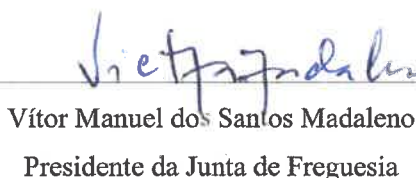 Vítor Manuel dos Santos Madaleno
Presidente da Junta de Freguesia